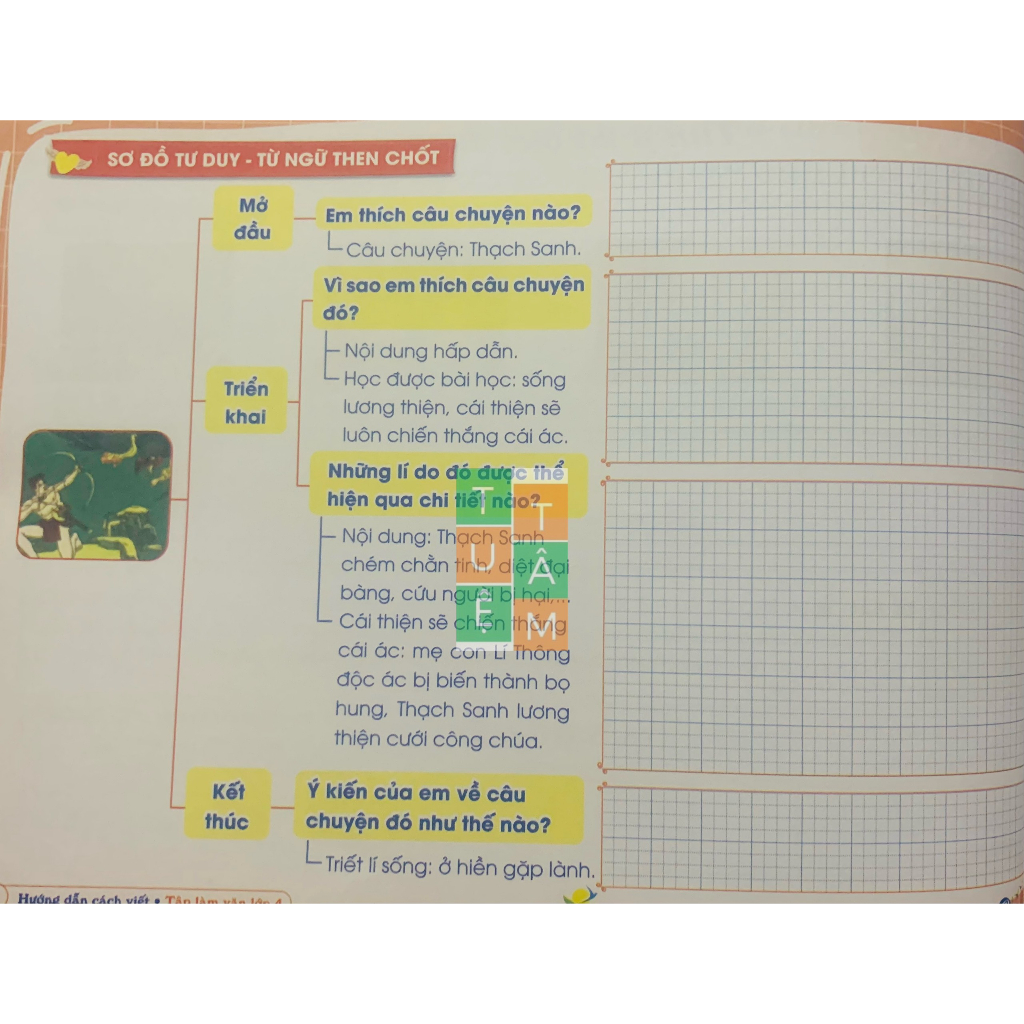 SƠ ĐỒ TƯ DUY - TỪ NGỮ THEN CHỐT
Mở
đầu
Em thích câu chuyện nào?
Câu chuyện: Thạch Sanh.
Triển
khai
Vì sao em thích câu chuyện
đó?
Nội dung hấp dẫn.
Học được bài học: sống
lương thiện, cái thiện sẽ
luôn chiến thắng cái ác.
Những lí do đó được thể
hiện qua chi tiết nào?
Nội dung: Thạch Sanh
chém chằn tinh, diệt đại
bàng, cứu người bị hại,...
Cái thiện sẽ chiến thắng
cái ác: mẹ con Lí Thông
độc ác bị biến thành bọ
hung, Thạch Sanh lương
thiện cưới công chúa.
TUỆ
TÂM
Kết
thúc
Ý kiến của em về câu
chuyện đó như thế nào?
Triết lí sống: ở hiền gặp lành.
Hướng dẫn cách viết • Tập làm văn lớp 4